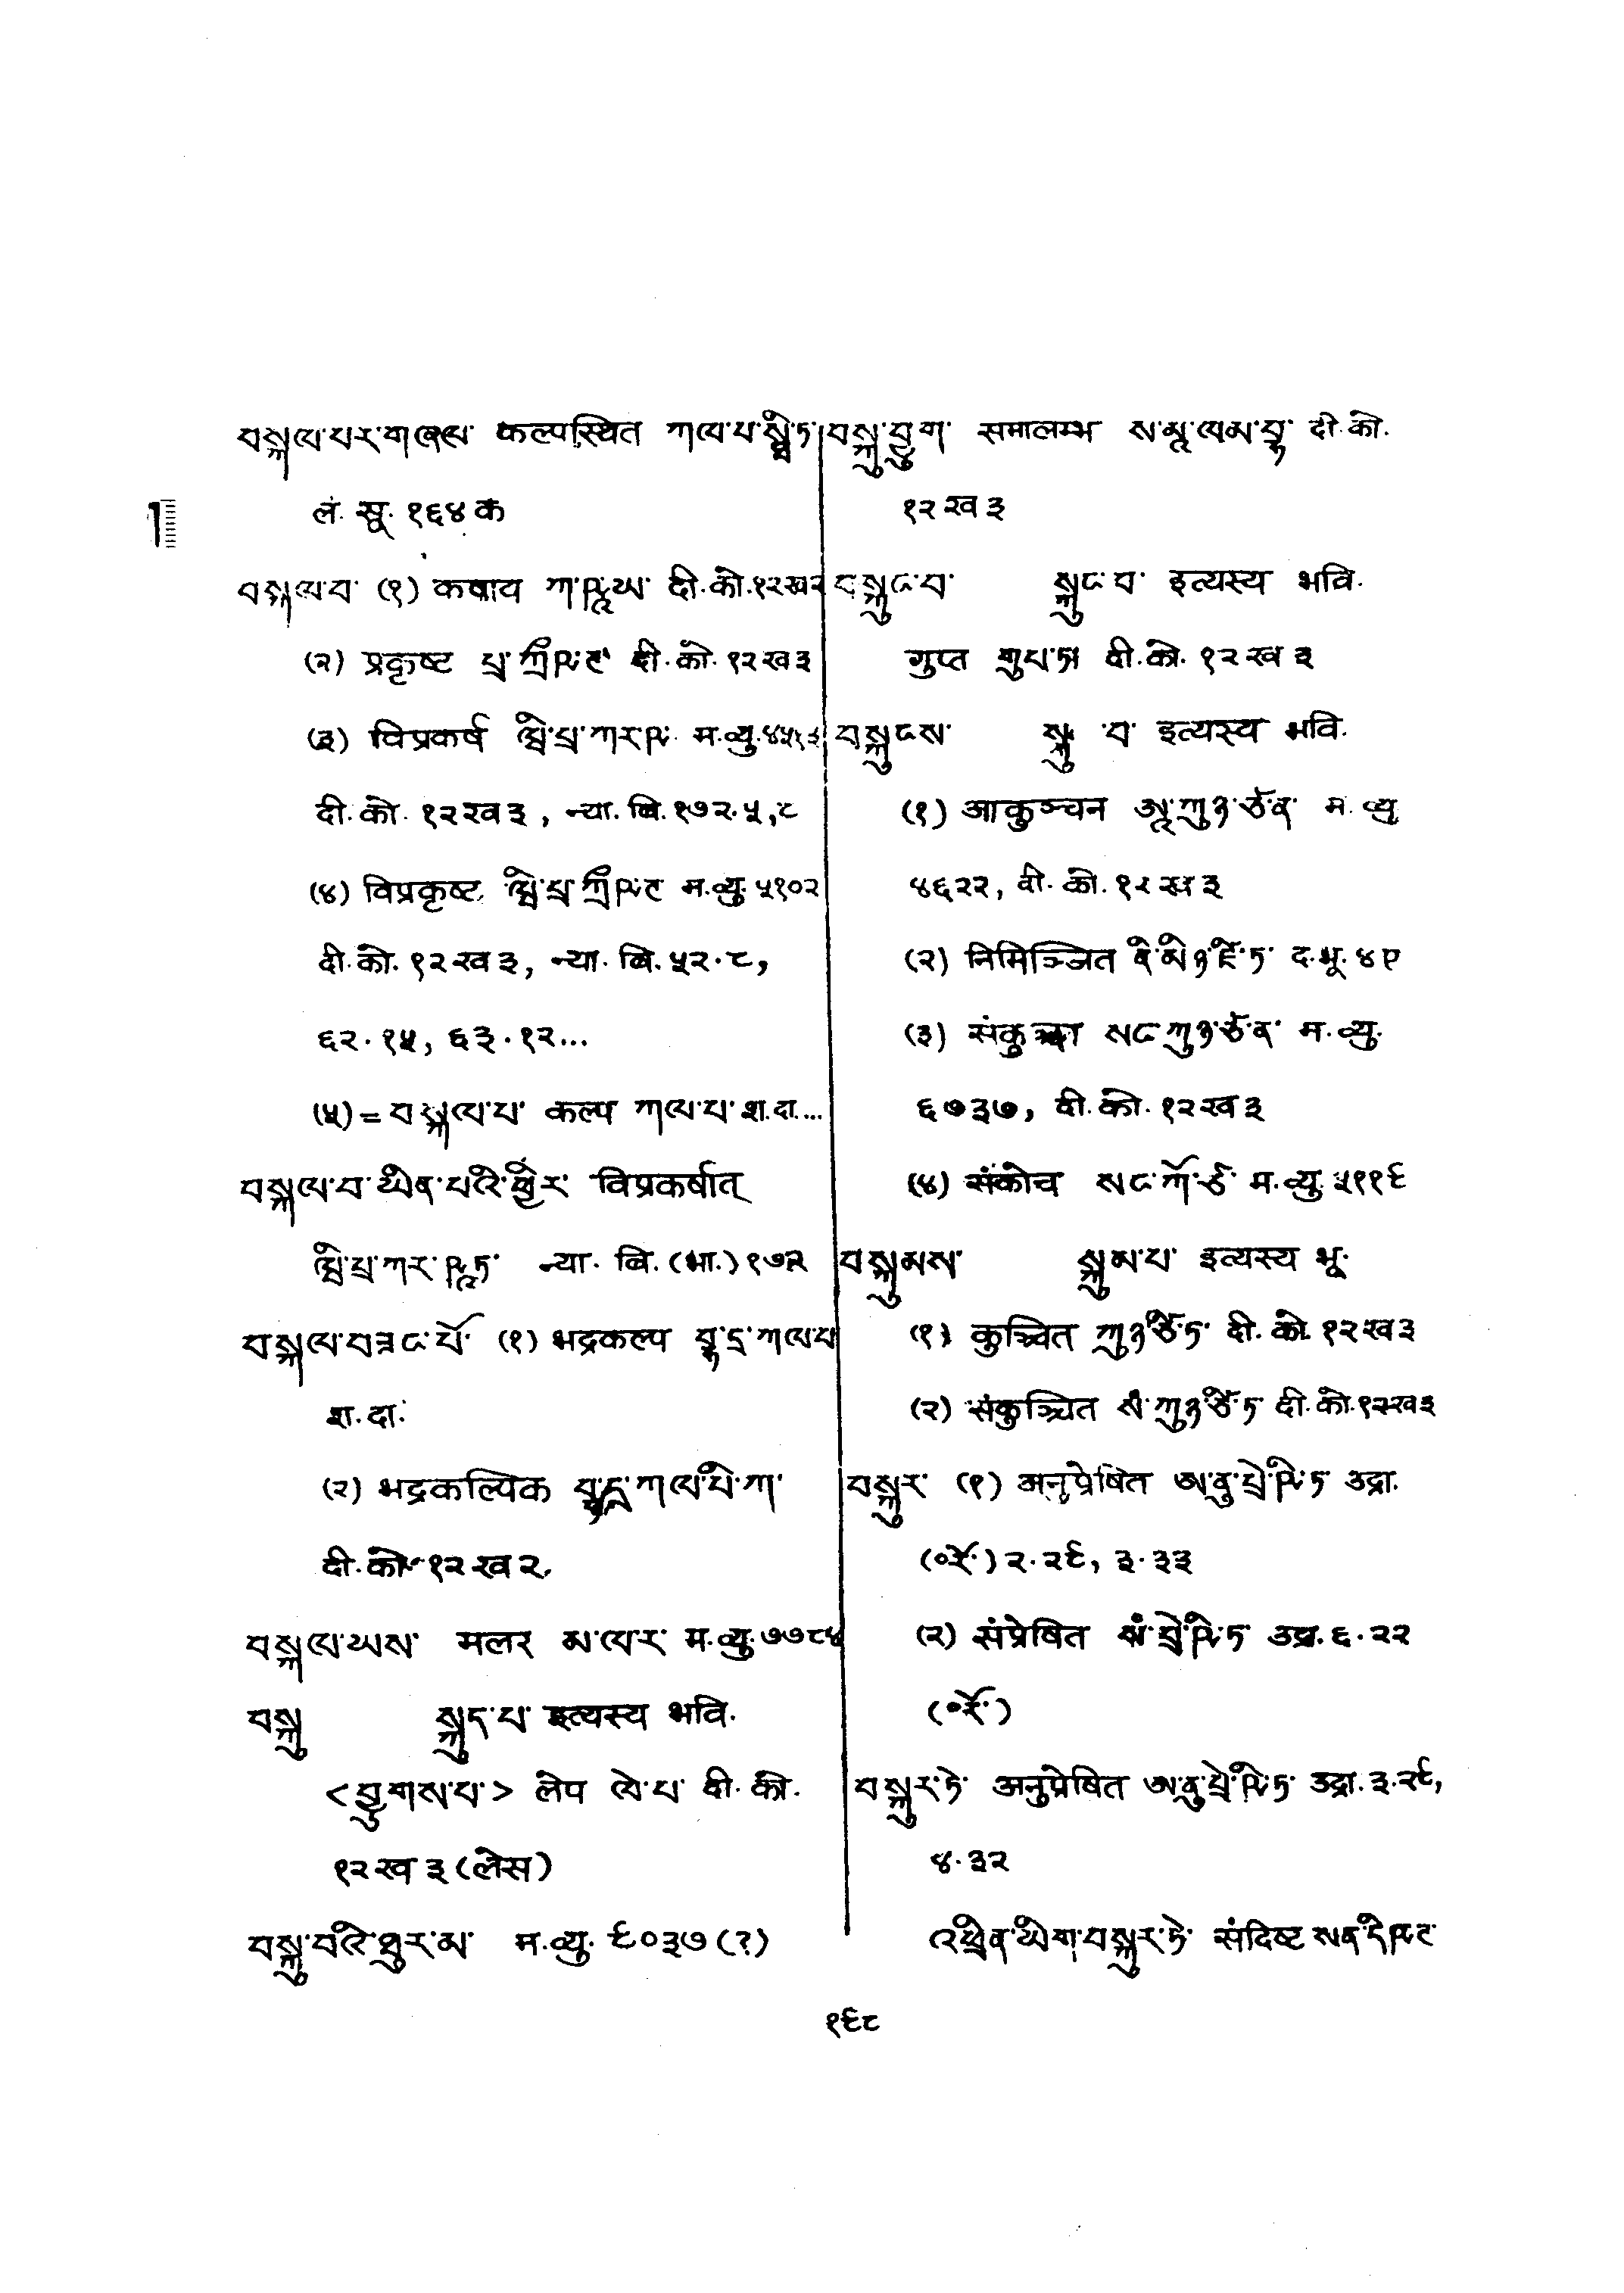 བསྐལ་པར་གནས་ कल्पस्थित ཀལ་པ་སྠི་ཏ་
लं. सू. १६४ क
བསྐལ་བ་ (१) कषाय ཀ་ཥཱ་ཡ་ दी.को.१२ख२
(२) प्रकृष्ट པྲ་ཀྲྀཥ་ཊ་ दी.को. १२ख३
(३) विप्रकर्ष བི་པྲ་ཀར་ཥ་ म.व्यु.
दी.को. १२ख३, न्या. बि. १७२.५,८
(४) विप्रकृष्ट བི་པྲ་ཀྲྀཥ་ཊ म.व्यु. ५१०२
दी.को. १२ख३, न्या. बि. ५२.८,
६२.१५, ६३.१२...
(५) = བསྐལ་པ་ कल्प ཀལ་པ་ श.दा...
བསྐལ་བ་ཡིན་པའི་ཕྱིར་ विप्रकर्षात्
བི་པྲ་ཀར་ཥཱཏ་ न्या. बि. (भा.) १७२
བསྐལ་བཟང་པོ་ (१) भद्रकल्प བྷ་དྲ་ཀལ་པ
श.दा.
(२) भद्रकल्पिक བྷ་དྲ་ཀལ་པི་ཀ་
दी.को. १२ख२
བསྐལ་ཡས་ मलर མ་ལ་ར་ म.व्यु. ७७८४
བསྐུ སྐུད་པ་ इत्यस्य भवि.
<བྱུགས་པ་> लेप ལེ་པ་ दी.को.
१२ख३ (लेस)
བསྐུ་བའི་ཐུར་མ་ म.व्यु. ९०३७ (?)
བསྐུ་བྱུག་ समालम्भ ས་མཱ་ལམ་བྷ་ दी.को.
१२ख३
བསྐུང་བ་ སྐུང་བ་ इत्यस्य भवि.
गुप्त གུཔ་ཏ། दी.को. १२ख३
བསྐུངས་ བ་ इत्यस्य भवि.
(१) आकुञ्चन ཨཱ་ཀུཉ་ཙ་ན་ म.व्यु
४६२२, दी.को. १२ख३
(२) निमिञ्जित ནི་མིཉ་ཛི་ཏ་ द.भू. ४९
(३) སང་ཀུཉ་ཙ་ན་ म.व्यु.
६७३७, दी.को. १२ख३
(४) संकोच སང་ཀོ་ཙ་ म.व्यु. ५११९
བསྐུམས་ སྐུམ་པ་ इत्यस्य भू.
(१) कुञ्चित ཀུཉ་ཙི་ཏ་ दी.को. १२ख३
(२) संकुञ्चित སཾ་ཀུཉ་ཙི་ཏ दी.को.१२ख३
བསྐུར་ (१) अनुप्रेषित ཨ་ནུ་པྲེ་ཥི་ཏ उद्रा.
(०རོ་) २.२९, ३.३३
(२) संप्रेषित སཾ་པྲེ་ཥི་ཏ उद्रा. ६.२२
(०རོ་)
བསྐུར་ཏེ་ अनुप्रेषित ཨ་ནུ་པྲེ་ཥི་ཏ་ उद्रा. ३.२९,
४.३२
འཕྲིན་ཡིག་བསྐུར་ཏེ་ संदिष्ट སན་དིཥ་ཊ་
१९८